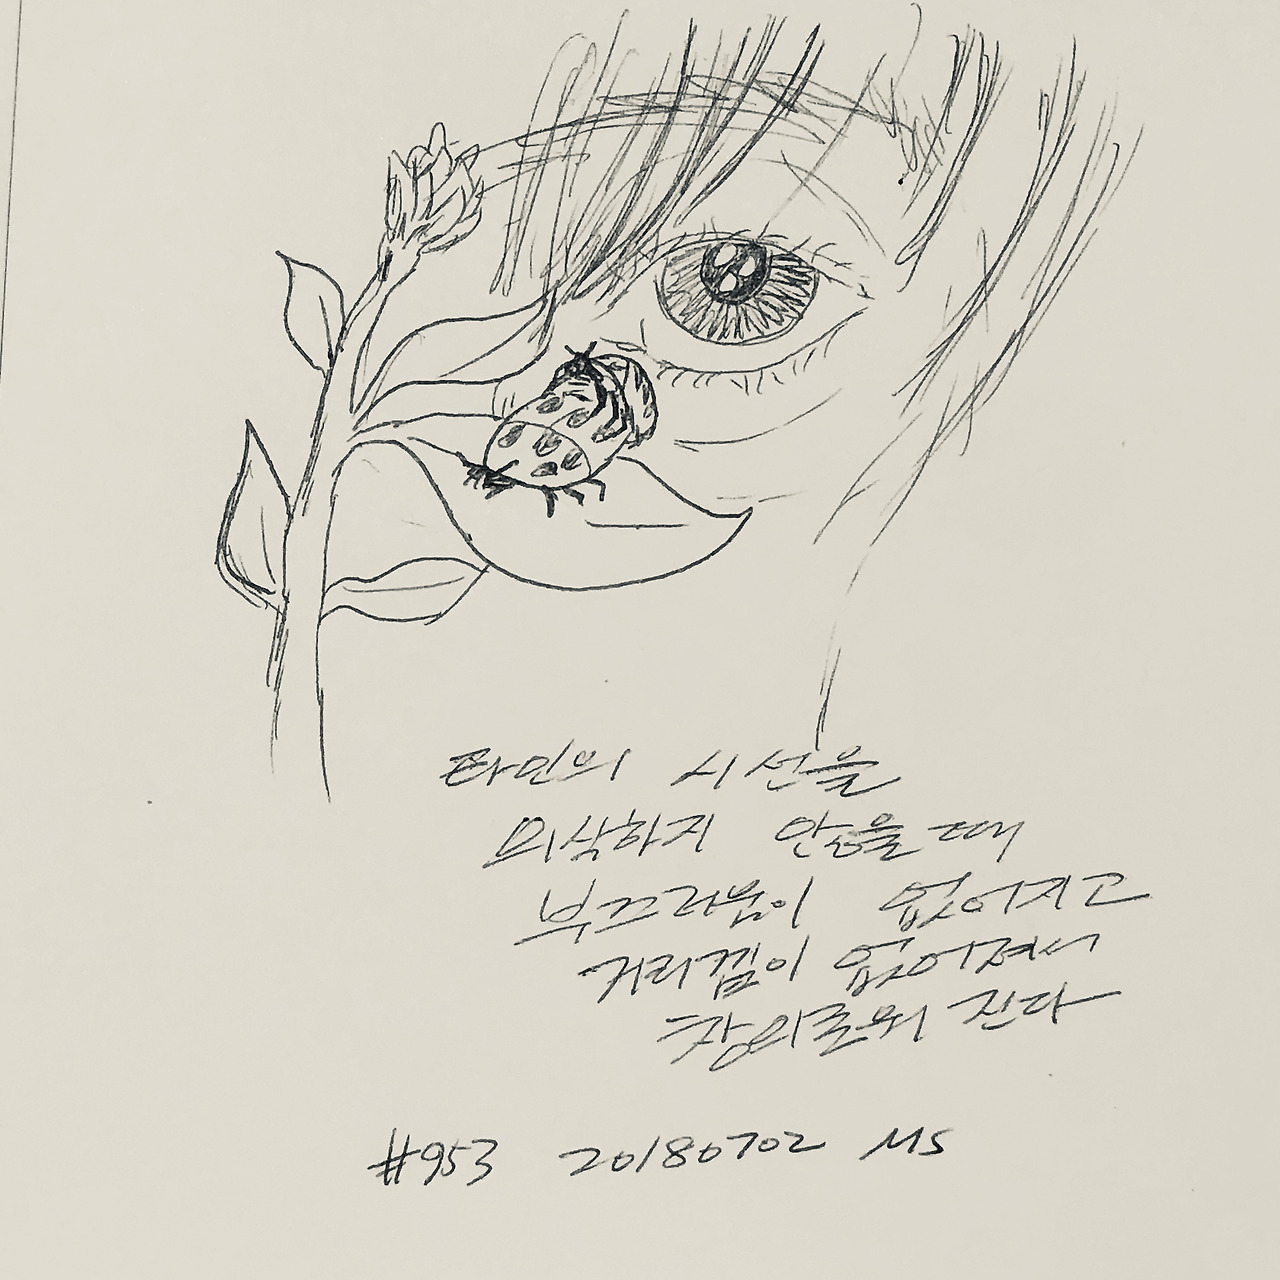 타인의 시선을
의식하지 않을때
부끄러움이 없어지고
거리낌이 없어져서
창의로워 진다
#953 20180702 MS